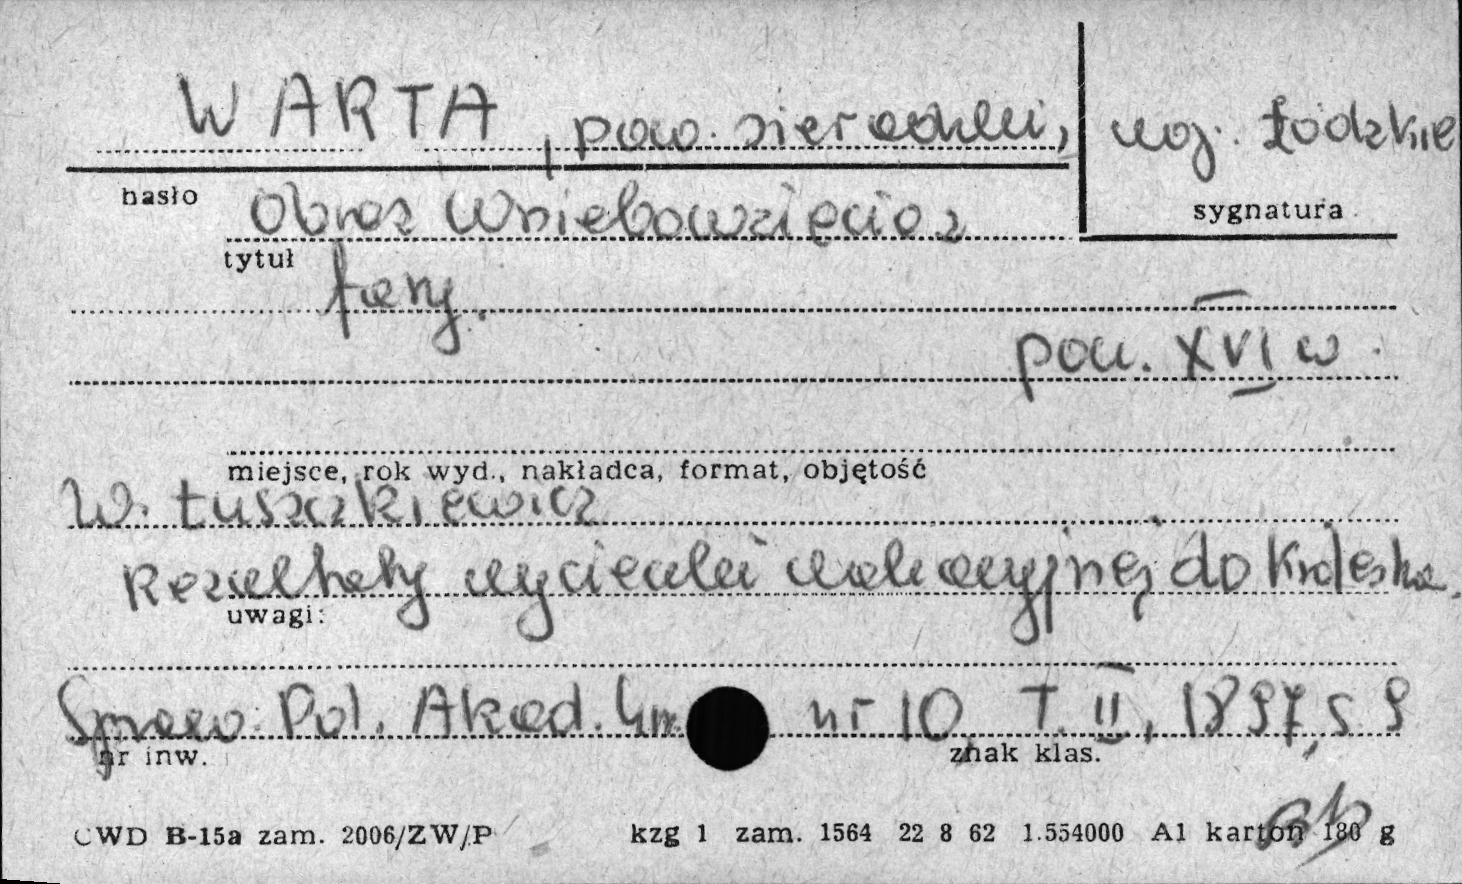 WARTA, pow. sieradzki, woj. łódzkie
hasło
sygnatura
Obraz Wniebowzięcia z
tytuł
fary.
pocz. XVI w.
miejsce, rok wyd., nakładca, format, objętość
W. Łuszczkiewicz
Rezultaty wycieczki wakacyjnej do Królestwa.
uwagi:
Spraw. Pol. Akad. Um. nr 10 T. II, 1897, s. 9
nr inw.
znak klas.
CWD B-15a zam. 2006/ZW/P kzg 1 zam. 1564 22 8 62 1.554000 A1 karton 180 g